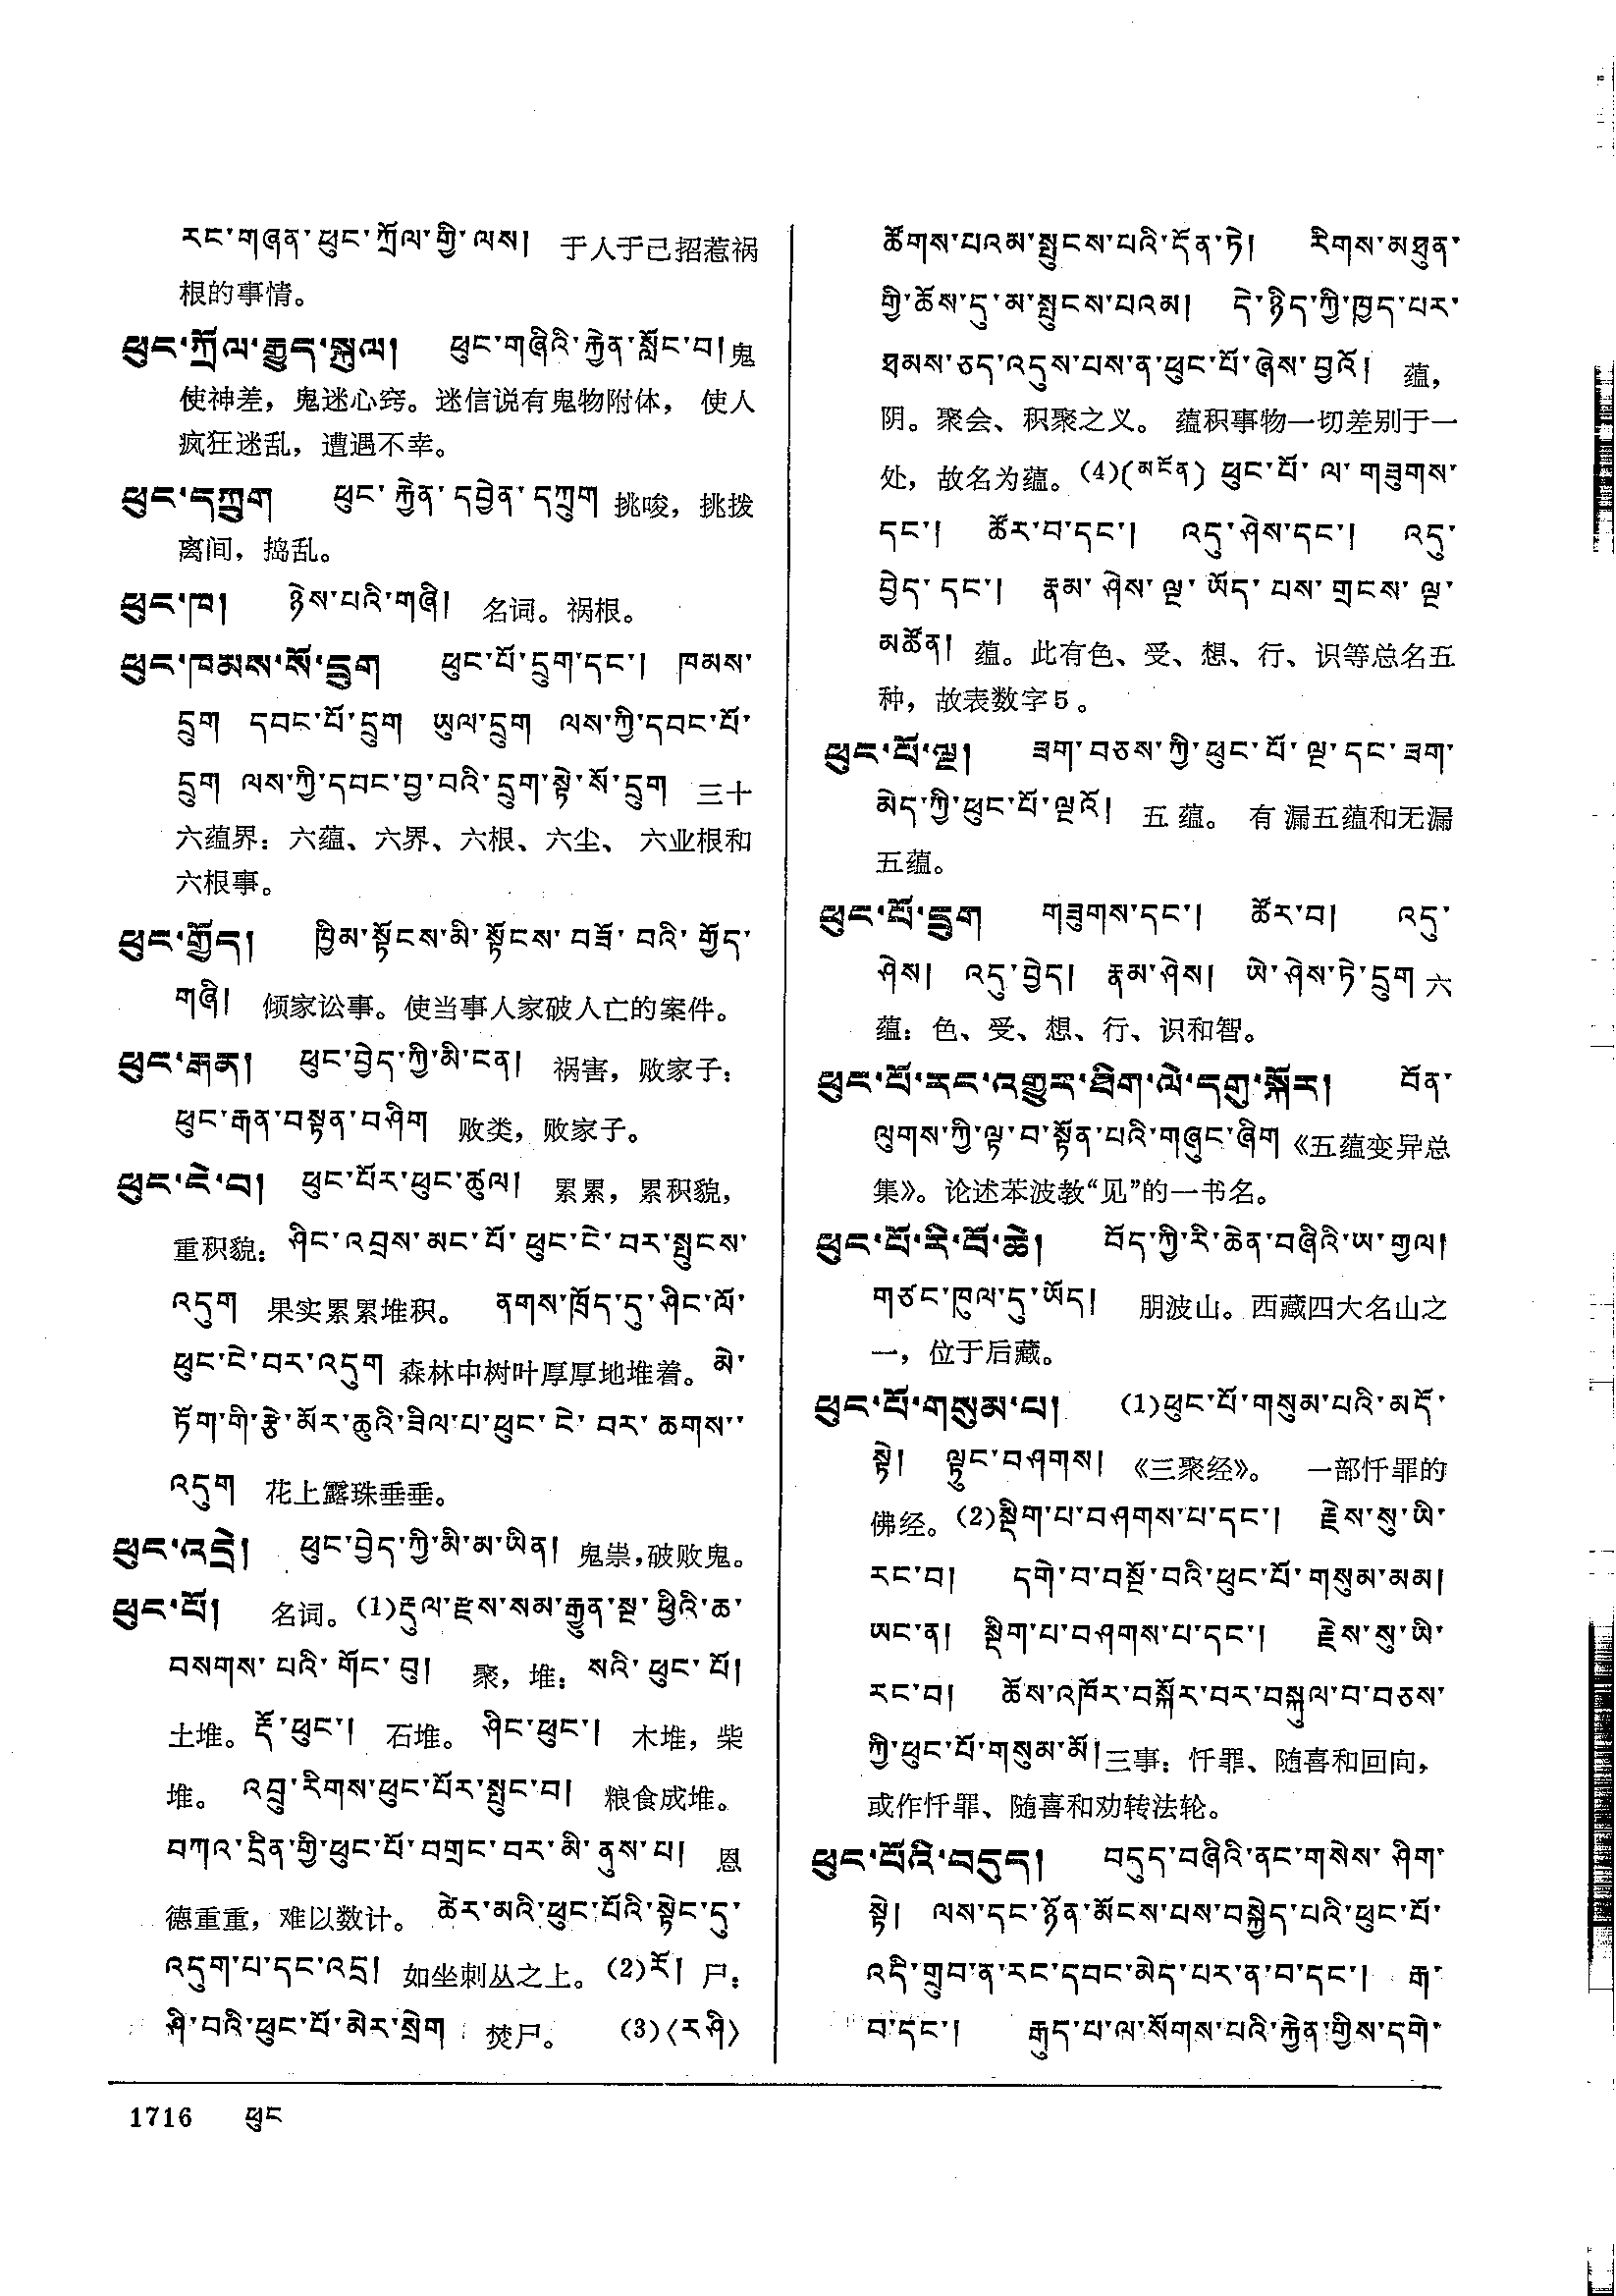 རང་གཞན་ཕུང་ཀྲོལ་གྱི་ལས། 于人于己招惹祸
根的事情。
ཕུང་ཀྲོལ་རྒྱུད་སྐུལ། ཕུང་གཞིའི་རྐྱེན་སློང་བ། 鬼
使神差，鬼迷心窍。迷信说有鬼物附体，使人
疯狂迷乱，遭遇不幸。
ཕུང་དཀྲུག ཕུང་རྐྱེན་དབྱེན་དཀྲུག 挑唆，挑拨
离间，捣乱。
ཕུང་ཁ། ཉེས་པའི་གཞི། 名词。祸根。
ཕུང་ཁམས་སོ་དྲུག ཕུང་པོ་དྲུག་དང་། ཁམས་
དྲུག དབང་པོ་དྲུག ཡུལ་དྲུག ལས་ཀྱི་དབང་པོ་
དྲུག ལས་ཀྱི་དབང་བྱ་བའི་དྲུག་སྟེ་སོ་དྲུག 三十
六蕴界：六蕴、六界、六根、六尘、六业根和
六根事。
ཕུང་གྱོད། ཁྱིམ་སྟོངས་མི་སྟོངས་བཟོ་བའི་གྱོད་
གཞི། 倾家讼事。使当事人家破人亡的案件。
ཕུང་རྒན། ཕུང་བྱེད་ཀྱི་མི་ངན། 祸害，败家子：
ཕུང་རྒན་བསྟན་བཤིག 败类，败家子。
ཕུང་ངེ་བ། ཕུང་པོར་ཕུང་ཚུལ། 累累，累积貌，
重积貌：ཤིང་འབྲས་མང་པོ་ཕུང་ངེ་བར་སྤུངས་
འདུག 果实累累堆积。 ནགས་ཁྲོད་དུ་ཤིང་ལོ་
ཕུང་ངེ་བར་འདུག 森林中树叶厚厚地堆着。མེ་
ཏོག་གི་རྩེ་མོར་ཆུའི་ཟིལ་པ་ཕུང་ངེ་བར་ཆགས་
འདུག 花上露珠垂垂。
ཕུང་འདྲེ། ཕུང་བྱེད་ཀྱི་མི་མ་ཡིན། 鬼祟，破败鬼。
ཕུང་པོ། 名词。(1)རྡུལ་རྫས་སམ་རྒྱུན་སྔ་ཕྱིའི་ཆ་
བསགས་པའི་གོང་བུ། 聚，堆：སའི་ཕུང་པོ།
土堆。རྡོ་ཕུང་། 石堆。ཤིང་ཕུང་། 木堆，柴
堆。 འབྲུ་རིགས་ཕུང་པོར་སྤུང་བ། 粮食成堆。
བཀའ་དྲིན་གྱི་ཕུང་པོ་བགྲང་བར་མི་ནུས་པ། 恩
德重重，难以数计。 ཚེར་མའི་ཕུང་པོའི་སྟེང་དུ་
འདུག་པ་དང་འདྲ། 如坐刺丛之上。(2)རོ། 尸：
ཤི་བའི་ཕུང་པོ་མེར་སྲེག 焚尸。 (3)〈ར་ཤི〉
ཚོགས་པའམ་སྤུངས་པའི་དོན་ཏེ། རིགས་མཐུན་
གྱི་ཆོས་དུ་མ་སྤུངས་པའམ། དེ་ཉིད་ཀྱི་ཁྱད་པར་
ཐམས་ཅད་འདུས་པས་ན་ཕུང་པོ་ཞེས་བྱའོ། 蕴，
阴。聚会、积聚之义。蕴积事物一切差别于一
处，故名为蕴。(4)(མངོན) ཕུང་པོ་ལ་གཟུགས་
དང་། ཚོར་བ་དང་། འདུ་ཤེས་དང་། འདུ་
བྱེད་དང་། རྣམ་ཤེས་ལྔ་ཡོད་པས་གྲངས་ལྔ་
མཚོན། 蕴。此有色、受、想、行、识等总名五
种，故表数字5。
ཕུང་པོ་ལྔ། ཟག་བཅས་ཀྱི་ཕུང་པོ་ལྔ་དང་ཟག་
མེད་ཀྱི་ཕུང་པོ་ལྔའོ། 五蕴。有漏五蕴和无漏
五蕴。
ཕུང་པོ་དྲུག གཟུགས་དང་། ཚོར་བ། འདུ་
ཤེས། འདུ་བྱེད། རྣམ་ཤེས། ཡེ་ཤེས་ཏེ་དྲུག 六
蕴：色、受、想、行、识和智。
ཕུང་པོ་རང་འགྱུར་ཐིག་ལེ་དགུ་སྐོར། བོན་
ལུགས་ཀྱི་ལྟ་བ་སྟོན་པའི་གཞུང་ཞིག 《五蕴变异总
集》。论述苯波教“见”的一书名。
ཕུང་པོ་རི་བོ་ཆེ། བོད་ཀྱི་རི་ཆེན་བཞིའི་ཨ་གྱལ།
གཙང་ཁུལ་དུ་ཡོད། 朋波山。西藏四大名山之
一，位于后藏。
ཕུང་པོ་གསུམ་པ། (1)ཕུང་པོ་གསུམ་པའི་མདོ་
སྟེ། ལྟུང་བཤགས། 《三聚经》。 一部忏罪的
佛经。(2)སྡིག་པ་བཤགས་པ་དང་། རྗེས་སུ་ཡི་
རང་བ། དགེ་བ་བསྔོ་བའི་ཕུང་པོ་གསུམ་མམ།
ཡང་ན། སྡིག་པ་བཤགས་པ་དང་། རྗེས་སུ་ཡི་
རང་བ། ཆོས་འཁོར་བསྐོར་བར་བསྐུལ་བ་བཅས་
ཀྱི་ཕུང་པོ་གསུམ་མོ། 三事：忏罪、随喜和回向，
或作忏罪、随喜和劝转法轮。
ཕུང་པོའི་བདུད། བདུད་བཞིའི་ནང་གསེས་ཤིག་
སྟེ། ལས་དང་ཉོན་མོངས་པས་བསྐྱེད་པའི་ཕུང་པོ་
འདི་གྲུབ་ན་རང་དབང་མེད་པར་ན་བ་དང་། རྒ་
བ་དང་། རྒུད་པ་ལ་སོགས་པའི་རྐྱེན་གྱིས་དགེ་
1716 ཕུང